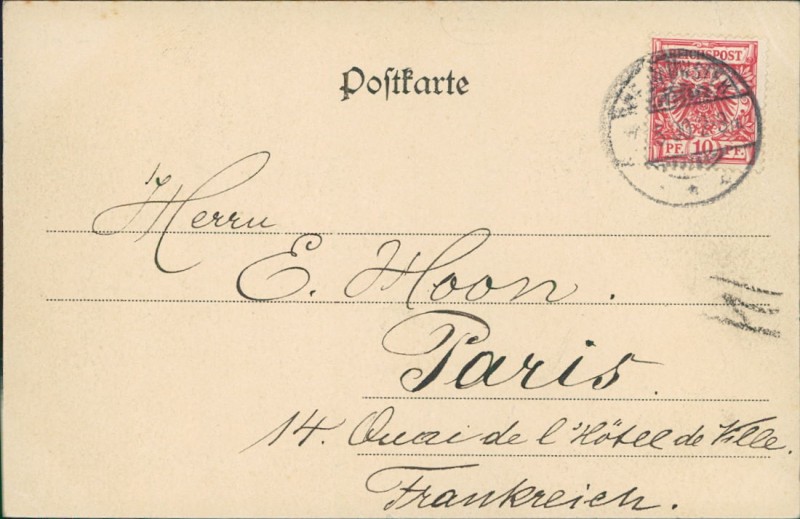 REICHSPOST
PF. 10 PF.
Postkarte
Herrn
E. Hoon.
Paris.
14. Quai de l'Hôtel de Ville.
Frankreich.